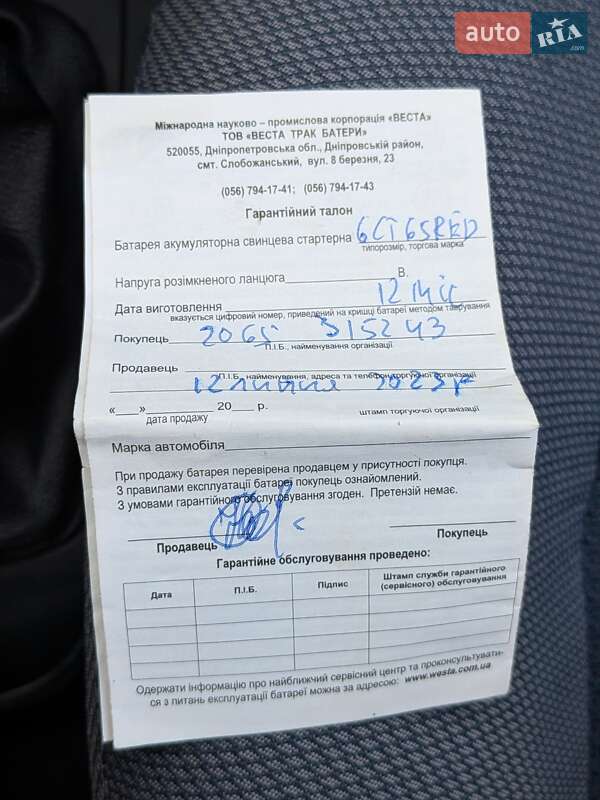 auto RIA.com
Міжнародна науково – промислова корпорація «ВЕСТА»
ТОВ «ВЕСТА ТРАК БАТЕРИ»
520055, Дніпропетровська обл., Дніпровській район,
смт. Слобожанський, вул. 8 березня, 23
(056) 794-17-41; (056) 794-17-43
Гарантійний талон
Батарея акумуляторна свинцева стартерна 6СТ65RED
типорозмір, торгова марка
Напруга розімкненого ланцюга В.
Дата виготовлення 12 міс
вказується цифровий номер, приведений на кришці батареї методом таврування
Покупець 2065 315243
П.І.Б., найменування організації
Продавець
П.І.Б., найменування, адреса та телефон торгуючої організації
12 липня 2023р
«___»________ 20___ р.
дата продажу штамп торгуючої організації
Марка автомобіля
При продажу батарея перевірена продавцем у присутності покупця.
З правилами експлуатації батареї покупець ознайомлений.
З умовами гарантійного обслуговування згоден. Претензій немає.
Продавець Покупець
Гарантійне обслуговування проведено:
Дата П.І.Б. Підпис Штамп служби гарантійного
(сервісного) обслуговування
Одержати інформацію про найближчий сервісний центр та проконсультувати-
ся з питань експлуатації батареї можна за адресою: www.westa.com.ua